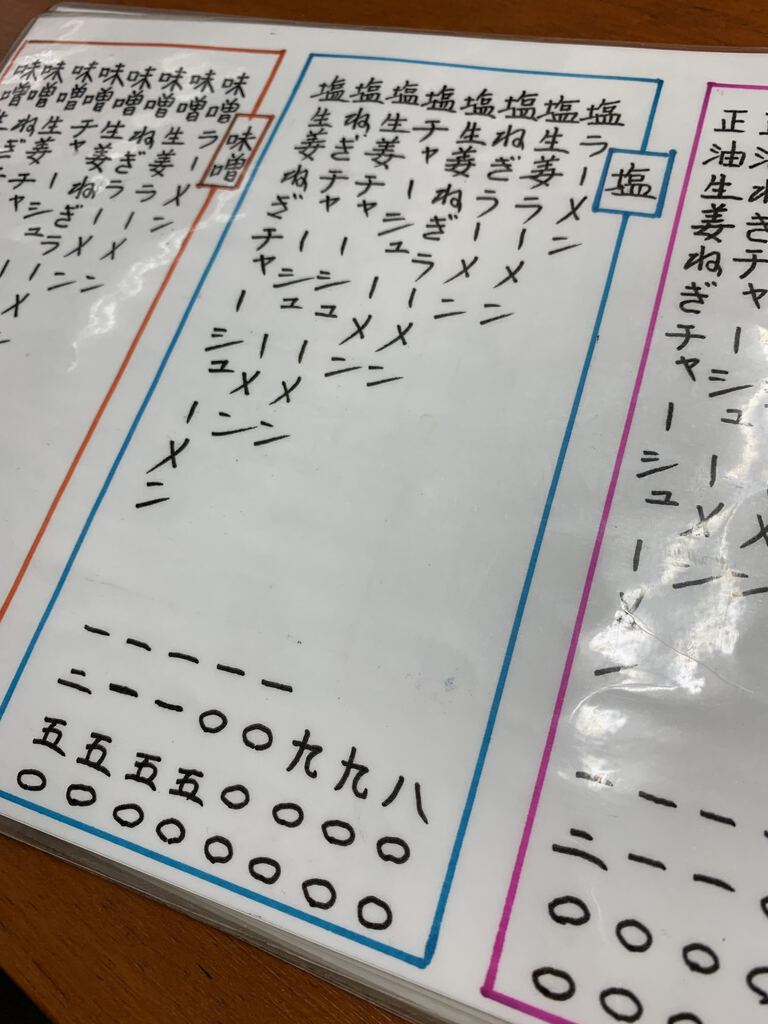 正油ねぎチャーシューメン 一一〇〇
正油生姜ねぎチャーシューメン 一二〇〇
塩
塩ラーメン 八〇〇
塩生姜ラーメン 九〇〇
塩ねぎラーメン 九〇〇
塩生姜ねぎラーメン 一〇〇〇
塩チャーシューメン 一〇五〇
塩生姜チャーシューメン 一一五〇
塩ねぎチャーシューメン 一一五〇
塩生姜ねぎチャーシューメン 一二五〇
味噌
味噌ラーメン
味噌生姜ラーメン
味噌ねぎラーメン
味噌生姜ねぎラーメン
味噌チャーシューメン
味噌生姜チャ
味噌ねぎ
味噌